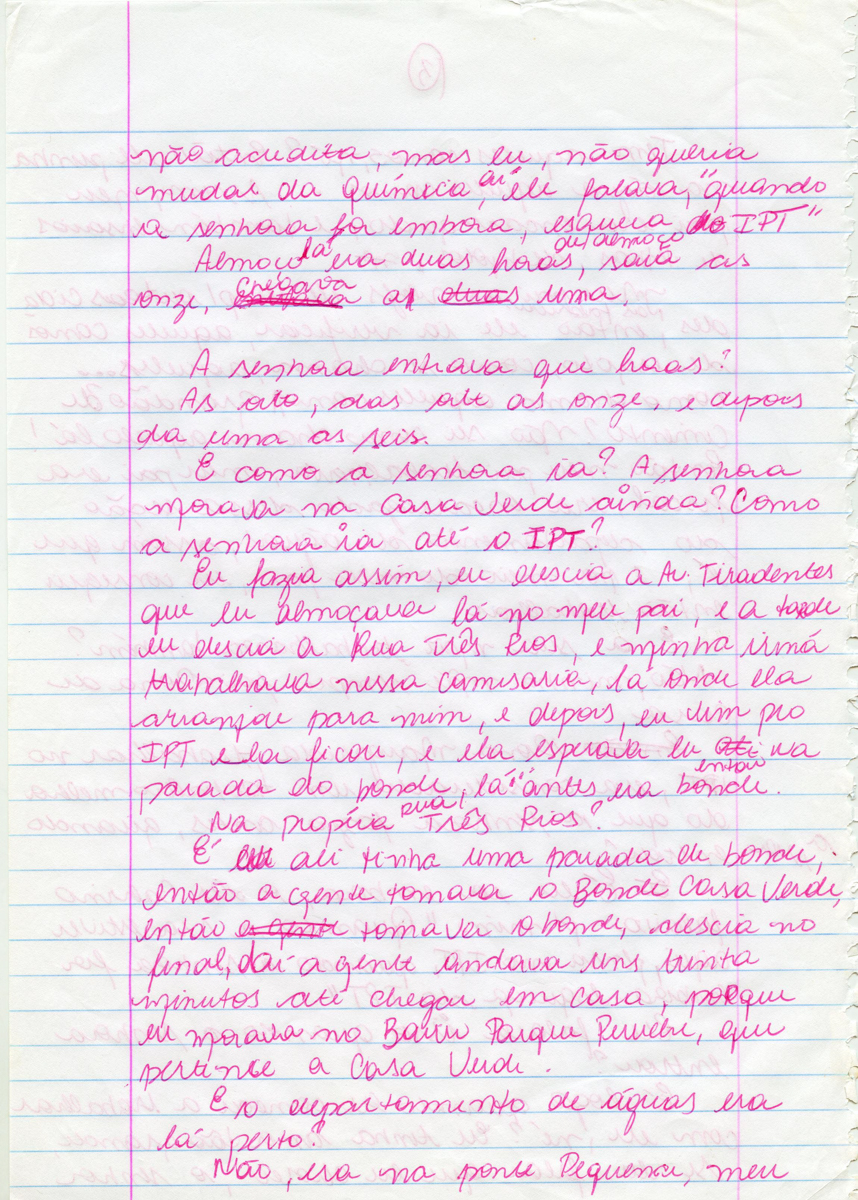 não acredita, mas eu, não queria
mudar da Química, aí ele falava, "quando
a senhora for embora, esqueça do IPT"
Almoço lá era duas horas de almoço, saía as
onze, chegava a uma.
A senhora entrava que horas?
As oito, das até as onze, e depois
da uma as seis.
E como a senhora ia? A senhora
morava na Casa Verde ainda? Como
a senhora ia até o IPT?
Eu fazia assim, eu descia a Av. Tiradentes
que eu almoçava lá no meu pai, e a tarde
eu descia a Rua Três Rios, e minha irmã
trabalhava nessa camisaria, la onde ela
arranjou para mim, e depois, eu vim pro
IPT e la ficou, e ela esperava eu ali na
parada do bonde, lá antes era bonde. então
Na propria rua Três Rios?
É ali tinha uma parada de bonde,
então a gente tomava o Bonde Casa Verde,
então a gente tomava o bonde, descia no
final, daí a gente andava uns trinta
minutos até chegar em casa, porque
eu morava no Bairro Parque Peruche, que
pertence a Casa Verde.
E o departamento de águas era
lá perto?
Não, era na ponte Pequena, meu